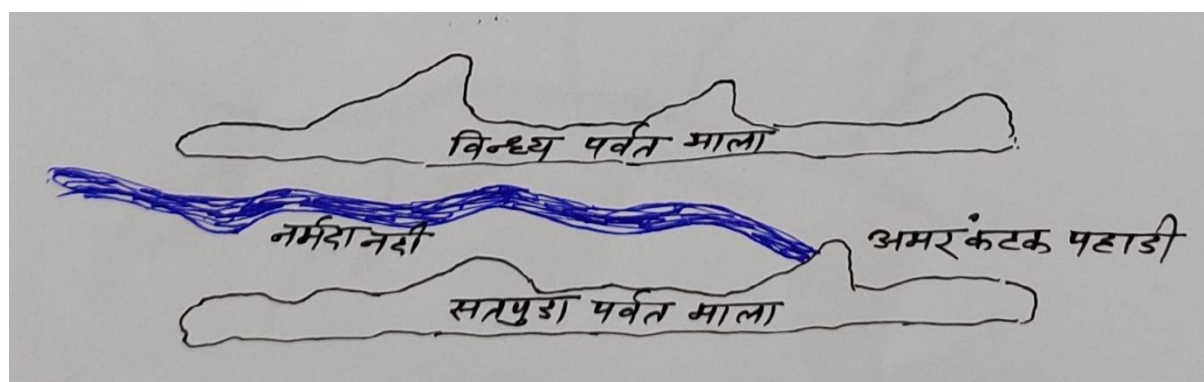 विन्ध्य पर्वत माला
नर्मदा नदी
अमरकंटक पहाडी
सतपुडा पर्वत माला